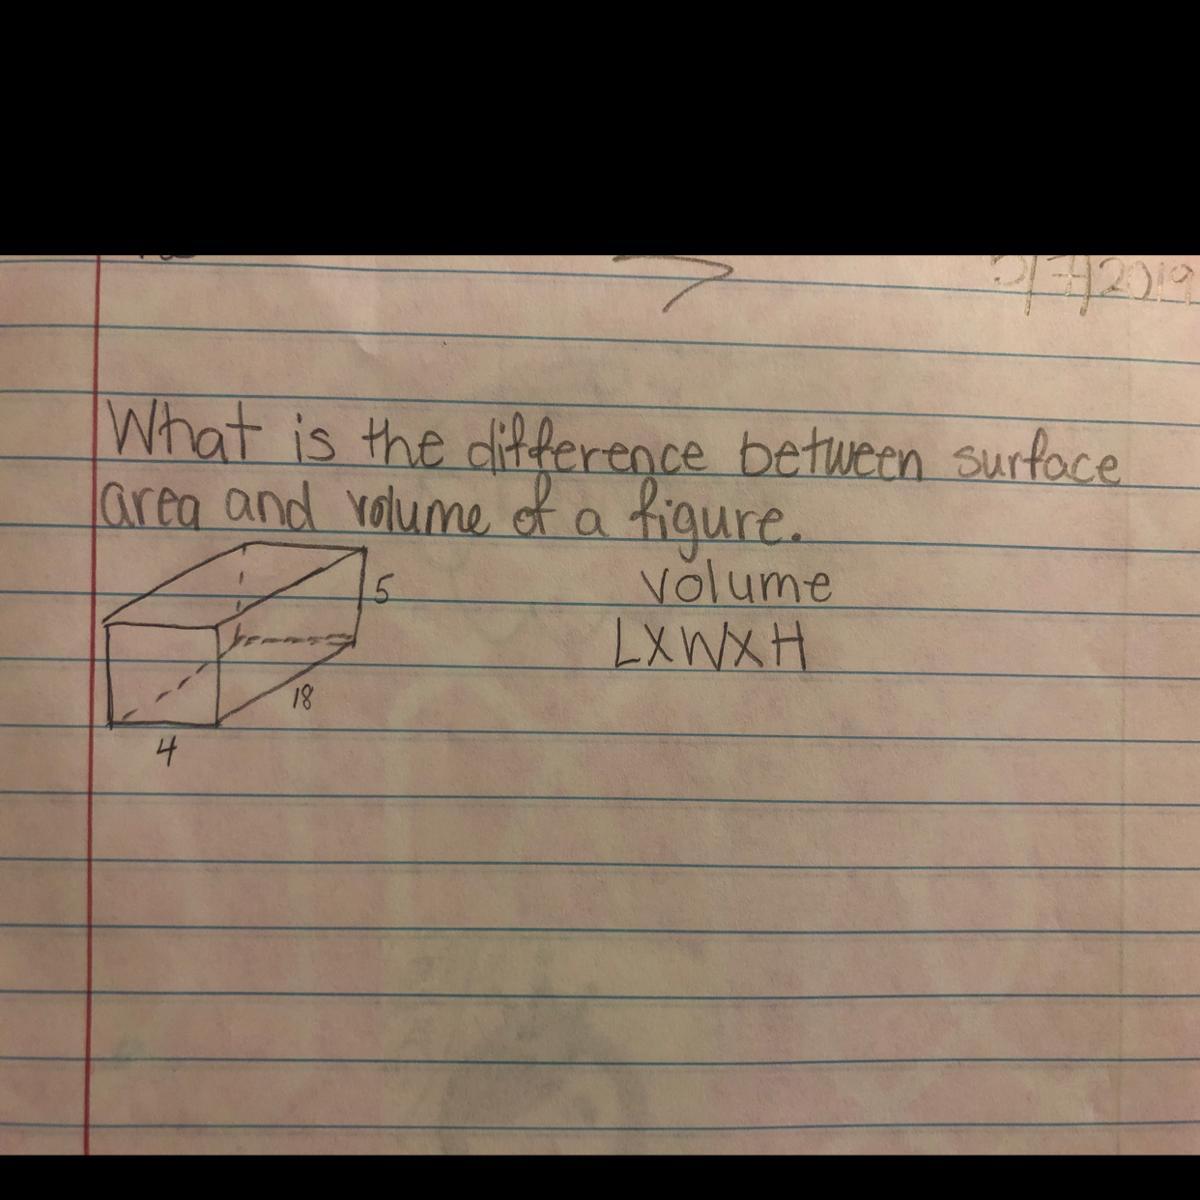 5/7/2019
What is the difference between surface
area and volume of a figure.
5
volume
LXWXH
18
4